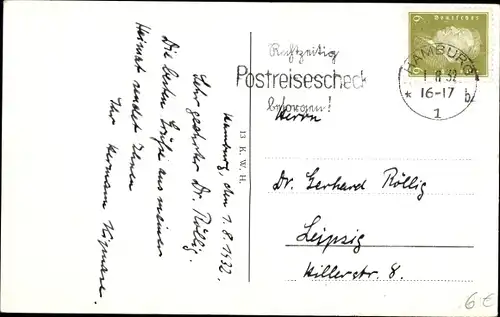 Hamburg, den 1.8.1932.
Sehr geehrter Dr. Röllig.
Die besten Grüße aus meiner
Heimat sendet Ihnen
Ihr Hermann
13 K. W. H.
Rechtzeitig
Postreisescheck
besorgen!
6 Deutsches 6
HAMBURG
1.8.32
* 16-17 b
1
Herrn
Dr. Gerhard Röllig
Leipzig
Hillerstr. 8.
6€